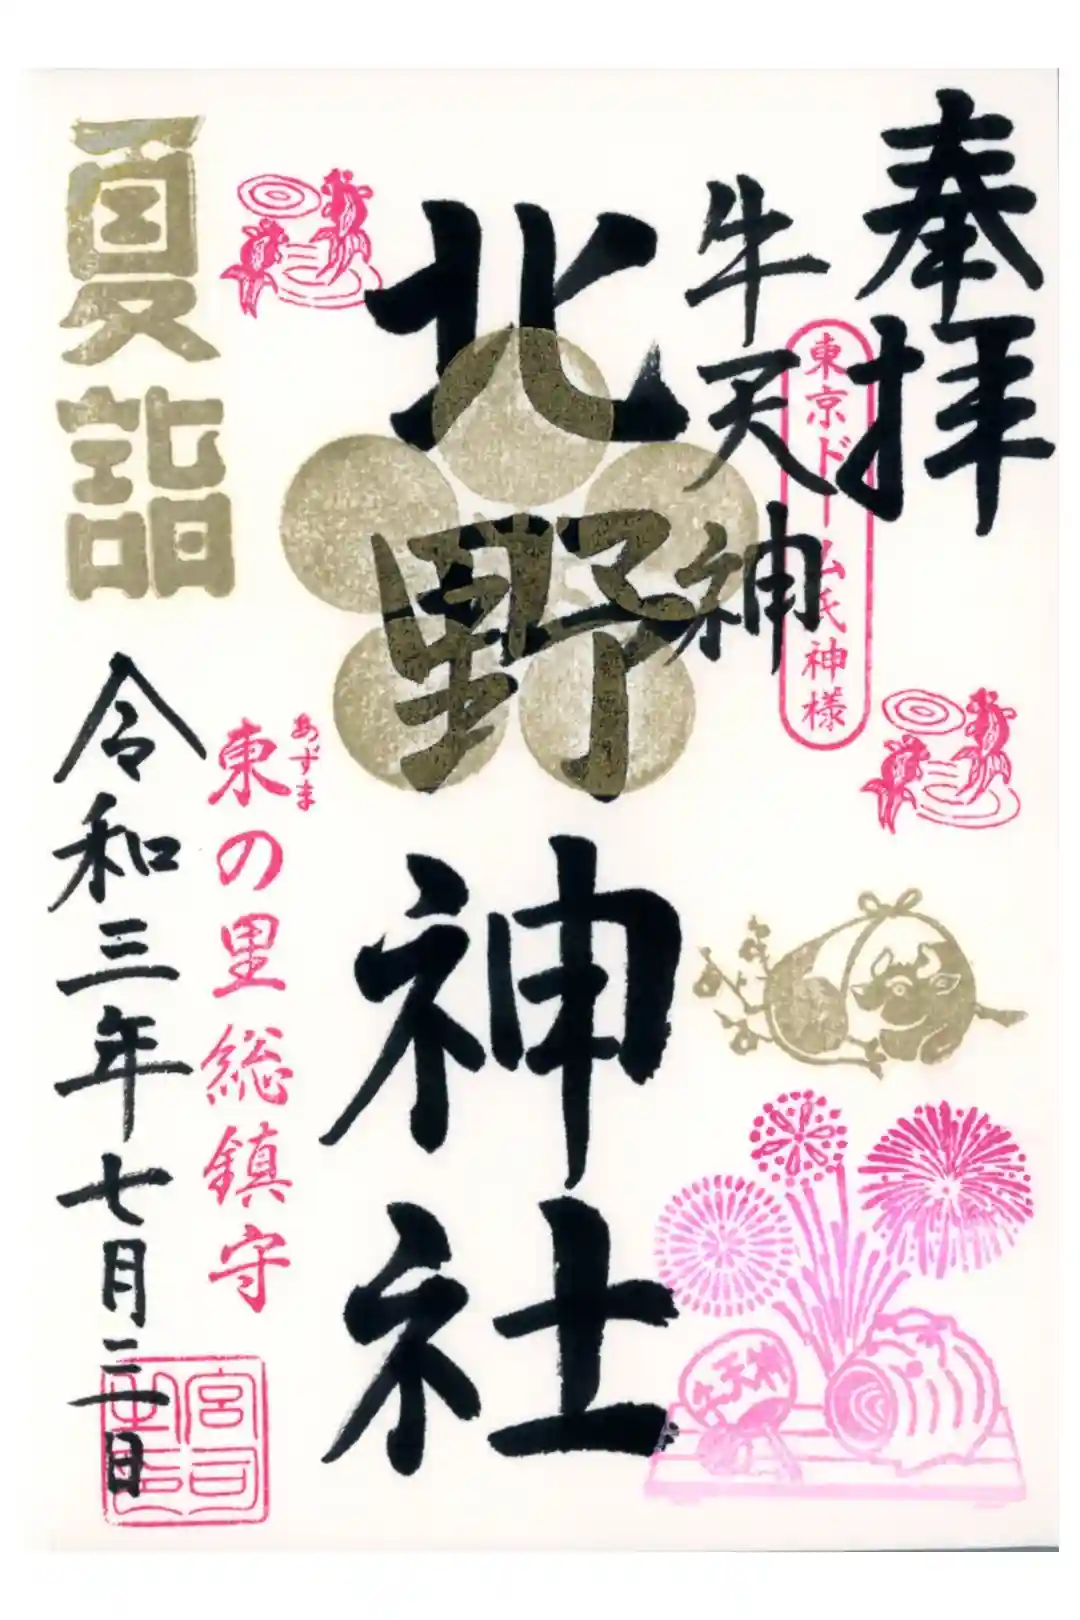 奉拝
東京ドーム氏神様
牛天神
北野神社
夏詣
あずま
東の里総鎮守
令和三年七月三日
牛天神
宮司之印